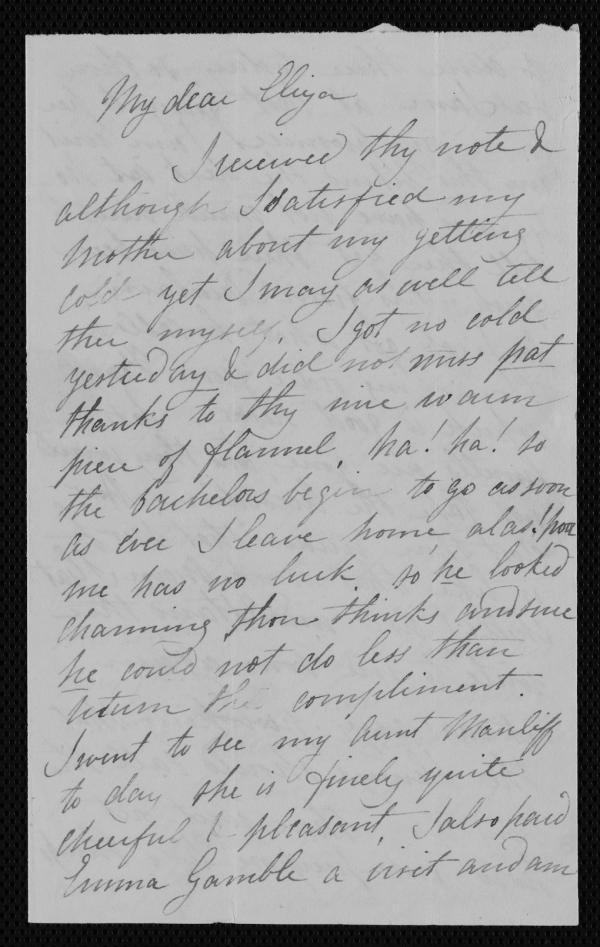 My dear Eliza
I received thy note &
although I satisfied my
Mother about my getting
cold yet I may as well tell
thee myself. I got no cold
yesterday & did not miss pat
thanks to thy nice warm
piece of flannel, ha! ha! so
the bachelors begin to go as soon
as ever I leave home, alas! poor
me has no luck, so he looked
charming thou thinks and sure
he could not do less than
return the compliment.
I went to see my Aunt
to day she is finely quite
cheerful & pleasant, I also paid
Emma Gamble a visit and am